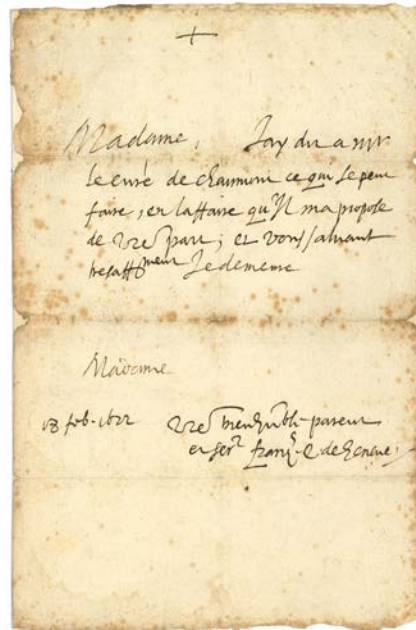 Madame, Jay dit a mr
le curé de chaumont ce qui se peut
faire, en laffaire qu'Il ma proposé
de vre part; et vous saluant
tresaffmeut Je demeure
Madame
18 feb. 1622 vre treshumble parent
et serr franç. E. de Geneve